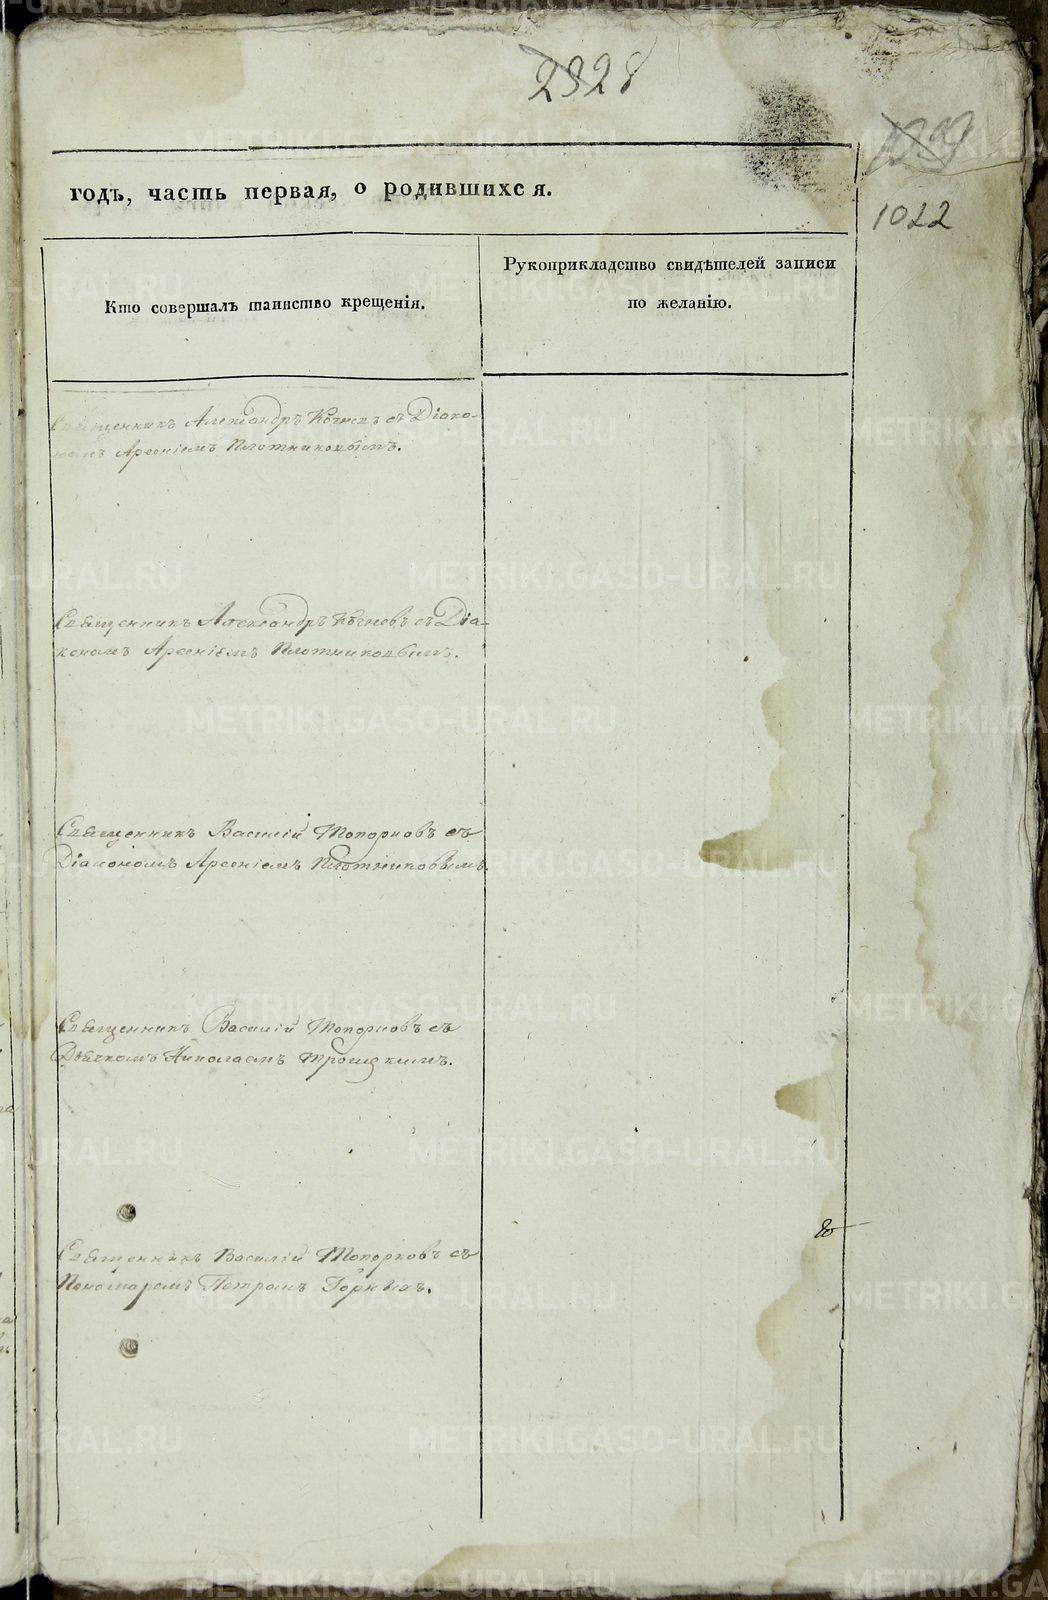 2328
1022
годъ, часть первая, о родившихся.
Кто совершалъ таинство крещенія.
Рукоприкладство свидѣтелей записи
по желанію.
Священникъ Александръ Кочневъ съ Діако-
номъ Арсеніемъ Плотниковымъ.
Священникъ Александръ Кочневъ съ Діа-
кономъ Арсеніемъ Плотниковымъ.
Священникъ Василій Топорковъ съ
Діакономъ Арсеніемъ Плотниковымъ.
Священникъ Василій Топорковъ съ
Дьячкомъ Николаемъ
Священникъ Василій Топорковъ съ
Пономаремъ Петромъ Горныхъ.
METRIKI.GASO-URAL.RU